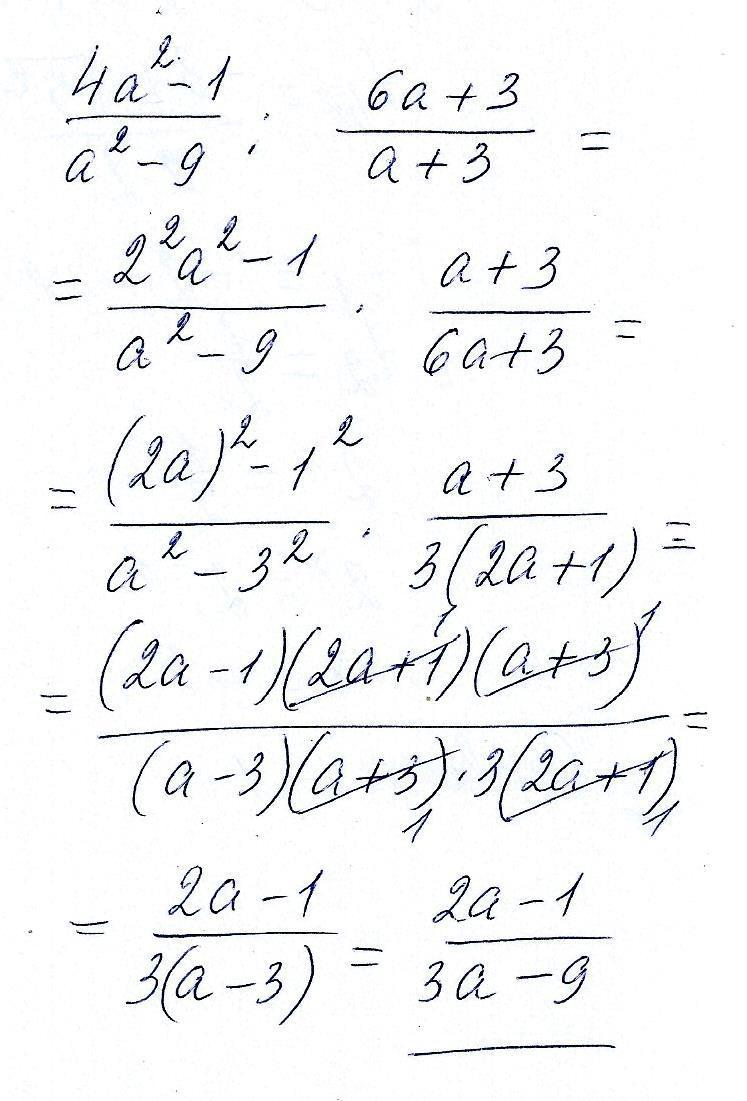 (4a² - 1)/(a² - 9) : (6a + 3)/(a + 3) =
= (2²a² - 1)/(a² - 9) · (a + 3)/(6a + 3) =
= ((2a)² - 1²)/(a² - 3²) · (a + 3)/(3(2a + 1)) =
= ((2a - 1)(2a + 1)¹(a + 3)¹)/((a - 3)(a + 3)₁ · 3(2a + 1)₁) =
= (2a - 1)/(3(a - 3)) = (2a - 1)/(3a - 9)